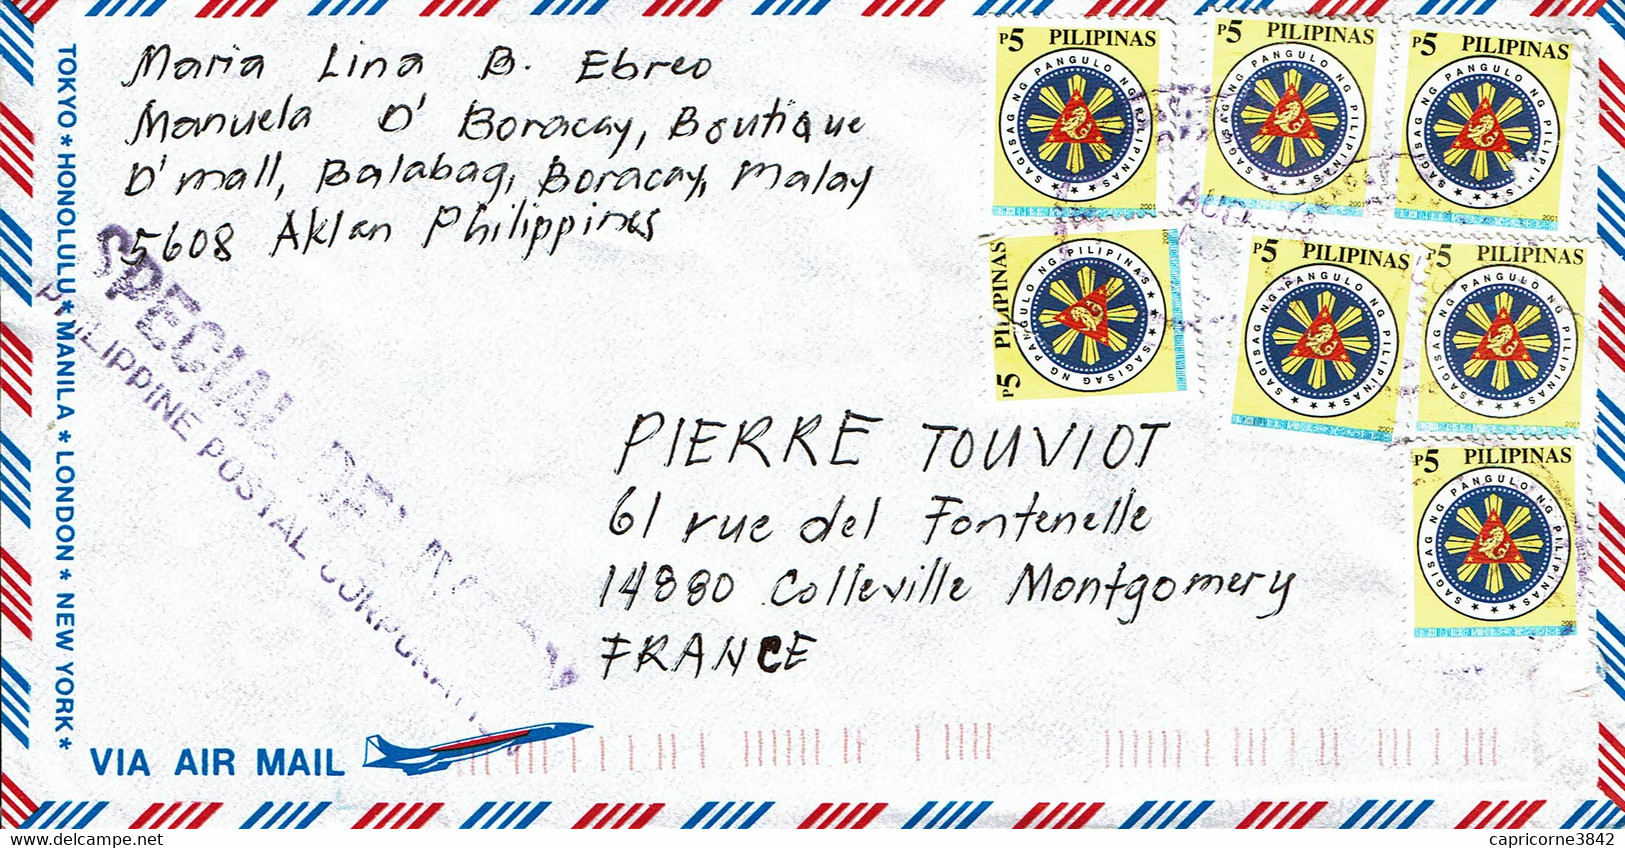 Maria Lina B. Ebreo
Manuela D' Boracay, Boutique
D'mall, Balabag, Boracay, Malay
5608 Aklan Philippines
TOKYO * HONOLULU * MANILA * LONDON * NEW YORK *
SPECIAL DELIVERY
PHILIPPINE POSTAL CORPORATION
P5 PILIPINAS
SAGISAG NG PANGULO NG PILIPINAS
2001
P5 PILIPINAS
SAGISAG NG PANGULO NG PILIPINAS
2001
P5 PILIPINAS
SAGISAG NG PANGULO NG PILIPINAS
2001
AUG
P5 PILIPINAS
SAGISAG NG PANGULO NG PILIPINAS
2001
P5 PILIPINAS
SAGISAG NG PANGULO NG PILIPINAS
2001
P5 PILIPINAS
SAGISAG NG PANGULO NG PILIPINAS
2001
P5 PILIPINAS
SAGISAG NG PANGULO NG PILIPINAS
2001
PIERRE TOUVIOT
61 rue del Fontenelle
14880 Colleville Montgomery
FRANCE
VIA AIR MAIL
www.delcampe.net
capricorne3842